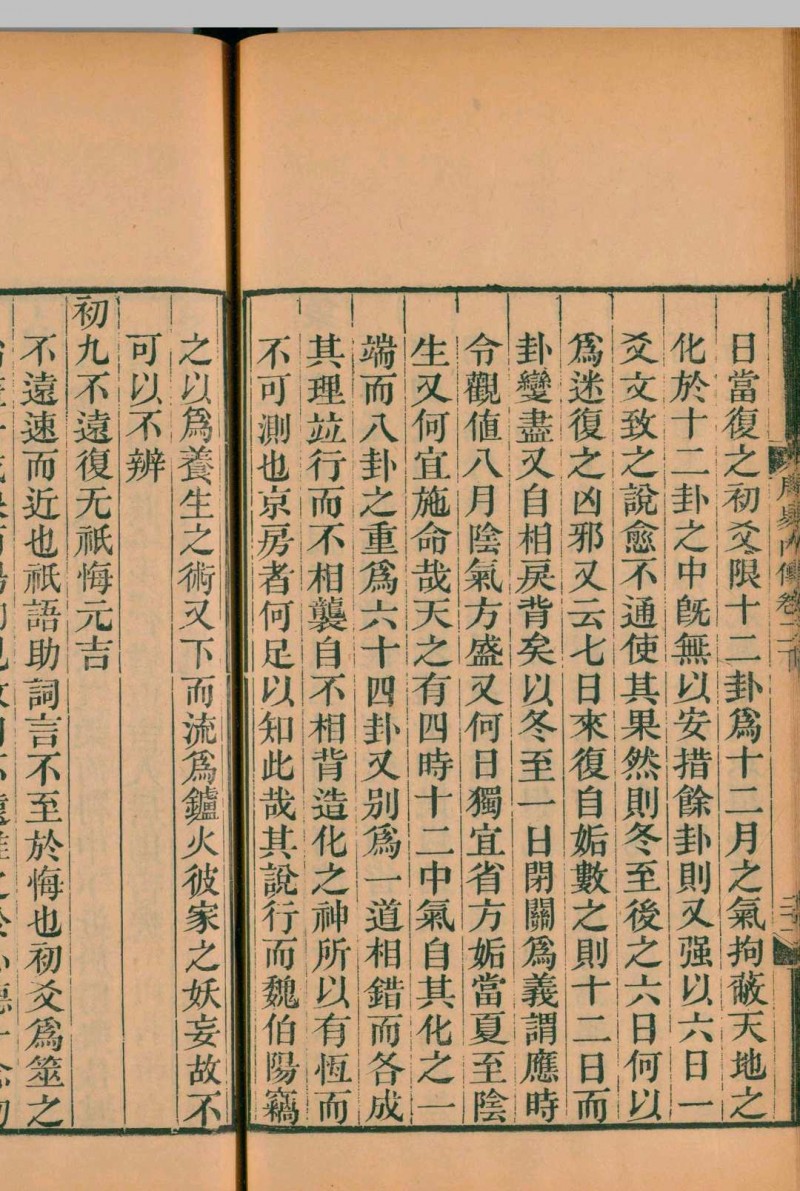 日當復之初爻限十二卦爲十二月之氣拘蔽天地之
化於十二卦之中旣無以安措餘卦則又强以六日一
爻文致之說愈不通使其果然則冬至後之六日何以
爲迷復之凶邪又云七日來復自姤數之則十二日而
卦變盡又自相戾背矣以冬至一日閉關爲義謂應時
令觀値八月陰氣方盛又何日獨宜省方姤當夏至陰
生又何宜施命哉天之有四時十二中氣自其化之一
端而八卦之重爲六十四卦又别爲一道相錯而各成
其理竝行而不相襲自不相背造化之神所以有恆而
不可測也京房者何足以知此哉其說行而魏伯陽竊
之以爲養生之術又下而流爲鑪火彼家之妖妄故不
可以不辨
初九不遠復无祇悔元吉
不遠速而近也祇語助詞言不至於悔也初爻爲筮之